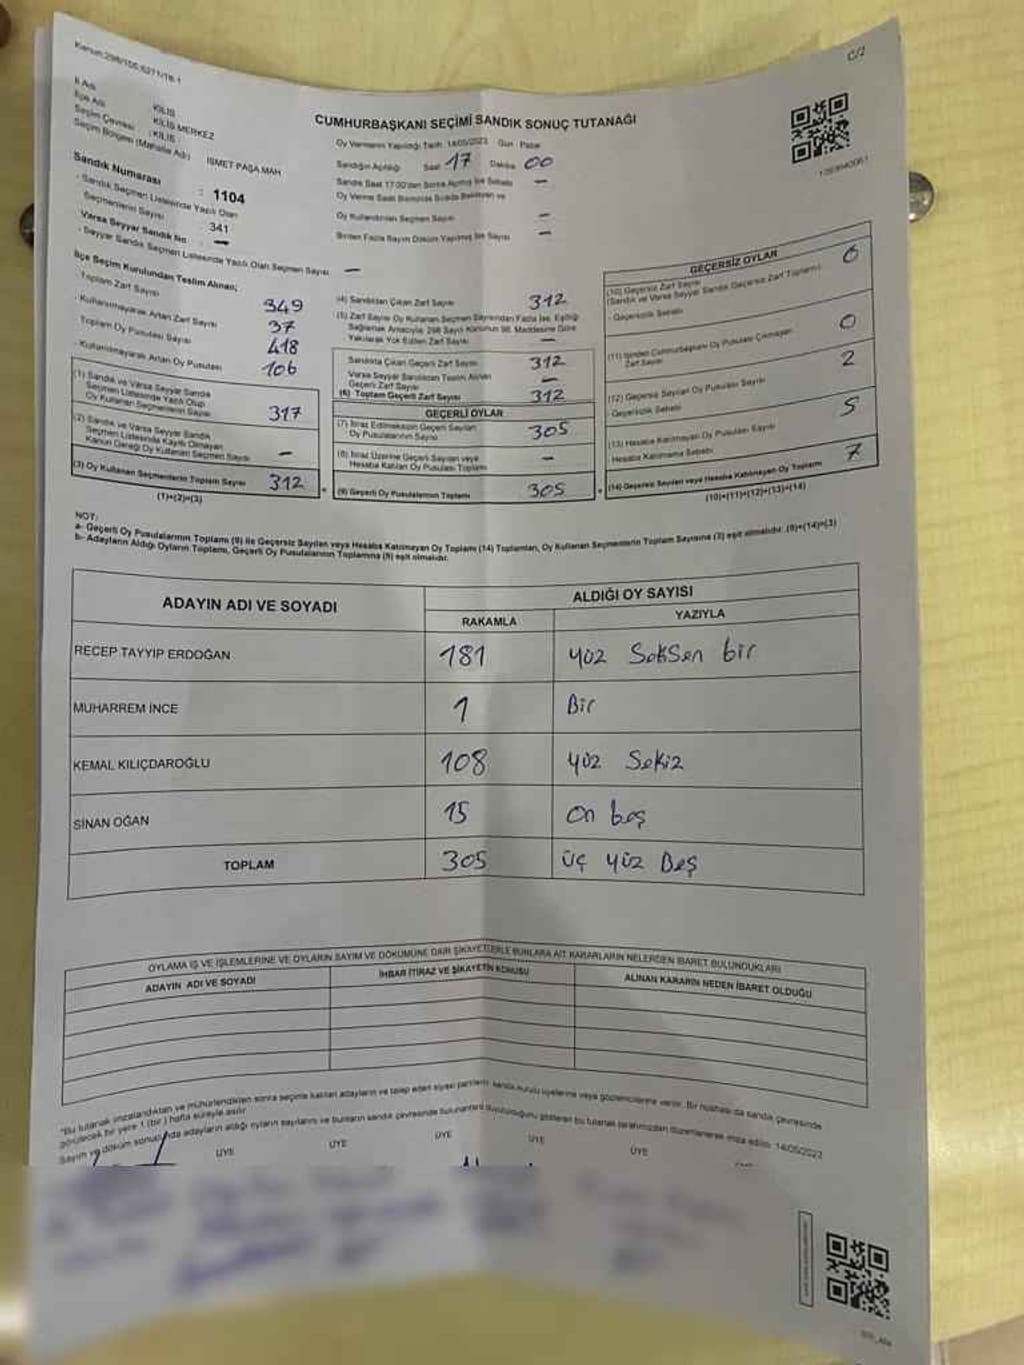 Kanun:298/105;6271/18.1
C/2
İl Adı KİLİS
İlçe Adı KİLİS MERKEZ
Seçim Çevresi : KİLİS
Seçim Bölgesi (Mahalle Adı) İSMET PAŞA MAH
Sandık Numarası : 1104
- Sandık Seçmen Listesinde Yazılı Olan
Seçmenlerin Sayısı 341
Varsa Seyyar Sandık No : —
- Seyyar Sandık Seçmen Listesinde Yazılı Olan Seçmen Sayısı —
CUMHURBAŞKANI SEÇİMİ SANDIK SONUÇ TUTANAĞI
Oy Vermenin Yapıldığı Tarih: 14/05/2023 Gün : Pazar
Sandığın Açıldığı Saat 17 Dakika 00
Sandık Saat 17:00'den Sonra Açılmış İse Sebebi —
Oy Verme Saati Bitiminde Sırada Bekleyen ve
Oy Kullandırılan Seçmen Sayısı —
Birden Fazla Sayım Döküm Yapılmış İse Sayısı —
İlçe Seçim Kurulundan Teslim Alınan;
- Toplam Zarf Sayısı 349
- Kullanılmayarak Artan Zarf Sayısı 37
Toplam Oy Pusulası Sayısı 418
- Kullanılmayarak Artan Oy Pusulası 106
(1) Sandık ve Varsa Seyyar Sandık
Seçmen Listesinde Yazılı Olup
Oy Kullanan Seçmenlerin Sayısı 317
(2) Sandık ve Varsa Seyyar Sandık
Seçmen Listesinde Kayıtlı Olmayan
Kanun Gereği Oy Kullanan Seçmen Sayısı —
(3) Oy Kullanan Seçmenlerin Toplam Sayısı 312
(1)+(2)=(3)
(4) Sandıktan Çıkan Zarf Sayısı 312
(5) Zarf Sayısı Oy Kullanan Seçmen Sayısından Fazla İse, Eşitliği
Sağlamak Amacıyla, 298 Sayılı Kanunun 98. Maddesine Göre
Yakılarak Yok Edilen Zarf Sayısı —
Sandıkta Çıkan Geçerli Zarf Sayısı 312
Varsa Seyyar Sandıktan Teslim Alınan
Geçerli Zarf Sayısı —
(6) Toplam Geçerli Zarf Sayısı 312
GEÇERLİ OYLAR
(7) İtiraz Edilmeksizin Geçerli Sayılan
Oy Pusulalarının Sayısı 305
(8) İtiraz Üzerine Geçerli Sayılan veya
Hesaba Katılan Oy Pusulası Toplamı —
(9) Geçerli Oy Pusulalarının Toplamı 305
GEÇERSİZ OYLAR
(10) Geçersiz Zarf Sayısı 0
(Sandık ve Varsa Seyyar Sandık Geçersiz Zarf Toplamı)
- Geçersizlik Sebebi
(11) İçinden Cumhurbaşkanı Oy Pusulası Çıkmayan
Zarf Sayısı 0
(12) Geçersiz Sayılan Oy Pusulası Sayısı 2
- Geçersizlik Sebebi
(13) Hesaba Katılmayan Oy Pusulası Sayısı 5
Hesaba Katılmama Sebebi
(14) Geçersiz Sayılan veya Hesaba Katılmayan Oy Toplamı 7
(10)+(11)+(12)+(13)=(14)
NOT:
a- Geçerli Oy Pusulalarının Toplamı (9) ile Geçersiz Sayılan veya Hesaba Katılmayan Oy Toplamı (14) Toplamları, Oy Kullanan Seçmenlerin Toplam Sayısına (3) eşit olmalıdır. (9)+(14)=(3)
b- Adayların Aldığı Oyların Toplamı, Geçerli Oy Pusulalarının Toplamına (9) eşit olmalıdır.
ADAYIN ADI VE SOYADI
ALDIĞI OY SAYISI
RAKAMLA YAZIYLA
RECEP TAYYİP ERDOĞAN 181 yüz Seksen bir
MUHARREM İNCE 1 Bir
KEMAL KILIÇDAROĞLU 108 yüz Sekiz
SİNAN OĞAN 15 on beş
TOPLAM 305 üç yüz Beş
OYLAMA İŞ VE İŞLEMLERİNE VE OYLARIN SAYIM VE DÖKÜMÜNE DAİR ŞİKAYETLERLE BUNLARA AİT KARARLARIN NELERDEN İBARET BULUNDUKLARI
ADAYIN ADI VE SOYADI İHBAR İTİRAZ VE ŞİKAYETİN KONUSU ALINAN KARARIN NEDEN İBARET OLDUĞU
"Bu tutanak imzalandıktan ve mühürlendikten sonra seçime katılan adayların ve talep eden siyasi partilerin sandık kurulu üyelerine veya gözlemcilerine verilir. Bir nüshası da sandık çevresinde
görülecek bir yere 1 (bir) hafta süreyle asılır.
Sayım ve döküm sonucunda adayların aldığı oyların sayılarını ve bunların sandık çevresinde bulunanlara duyurulduğunu gösteren bu tutanak tarafımızdan düzenlenerek imza edildi. 14/05/2023
ÜYE ÜYE ÜYE ÜYE ÜYE